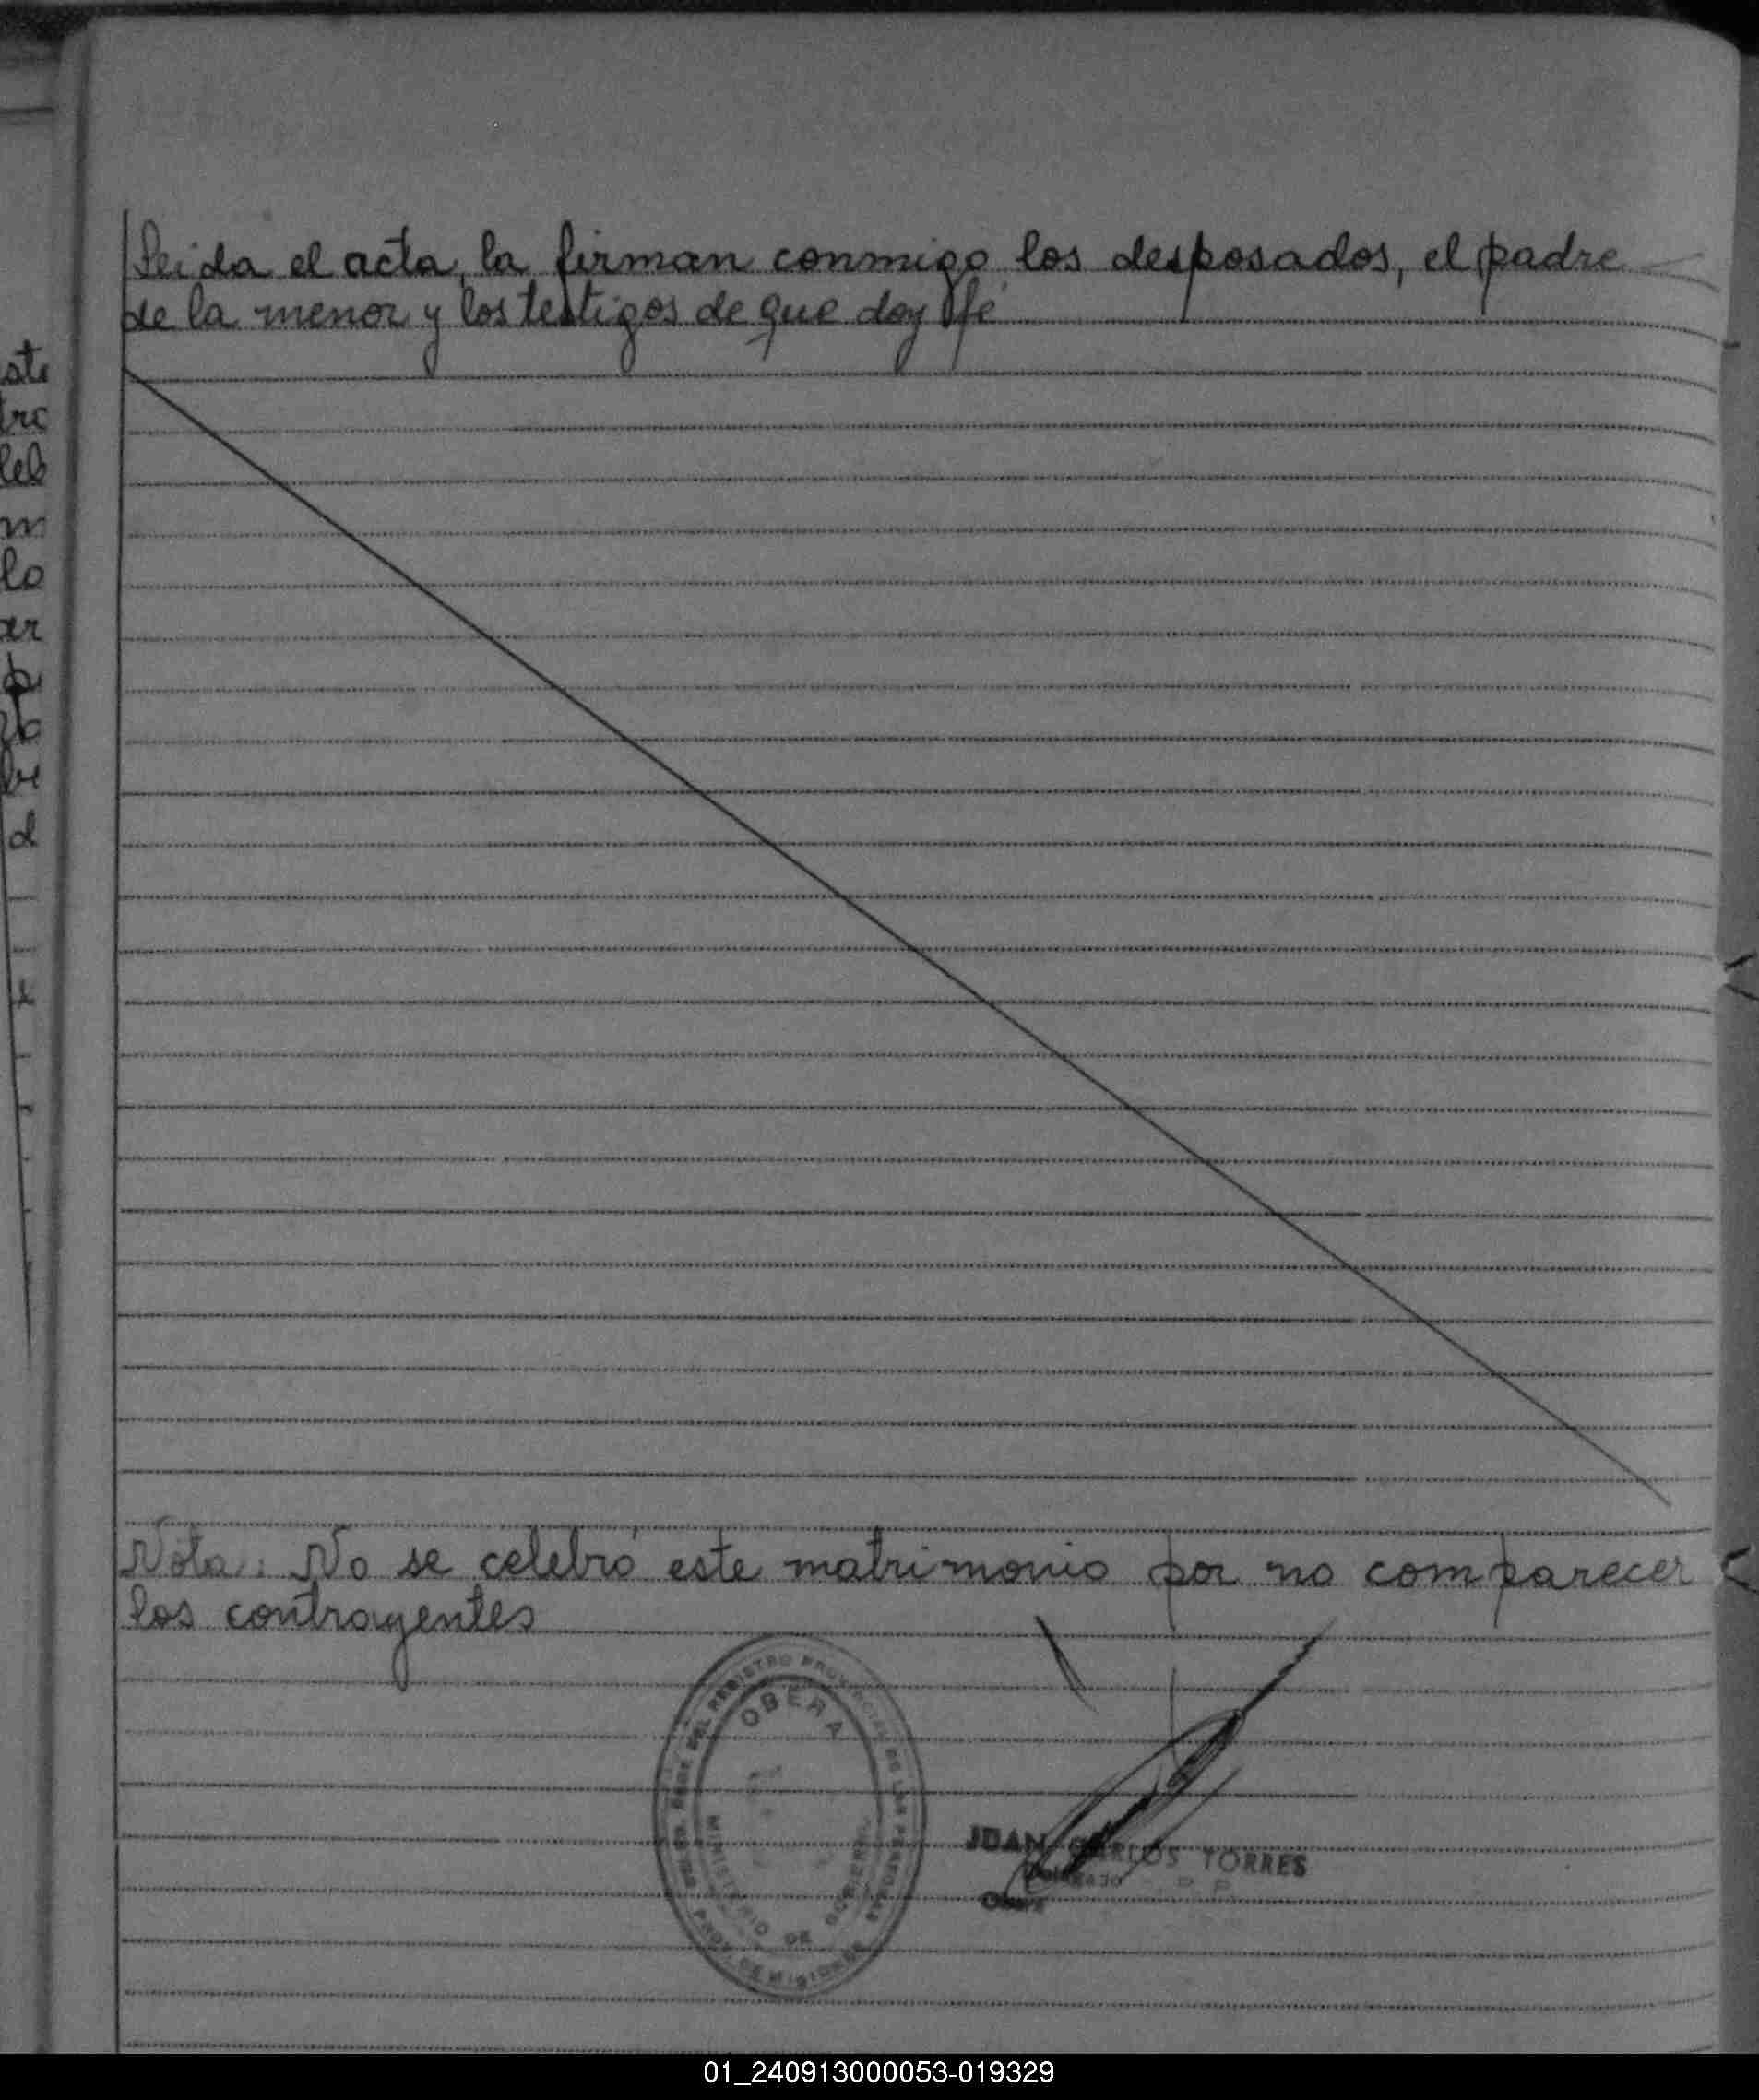 Leida el acta, la firman conmigo los desposados, el padre
de la menor y los testigos de que doy fé
Nota: No se celebró este matrimonio por no comparecer
los contrayentes
REGISTRO PROVINCIAL DE LAS PERSONAS
OBERA
MINISTERIO DE GOBIERNO
PROV. DE MISIONES
JUAN CARLOS TORRES
01_240913000053-019329